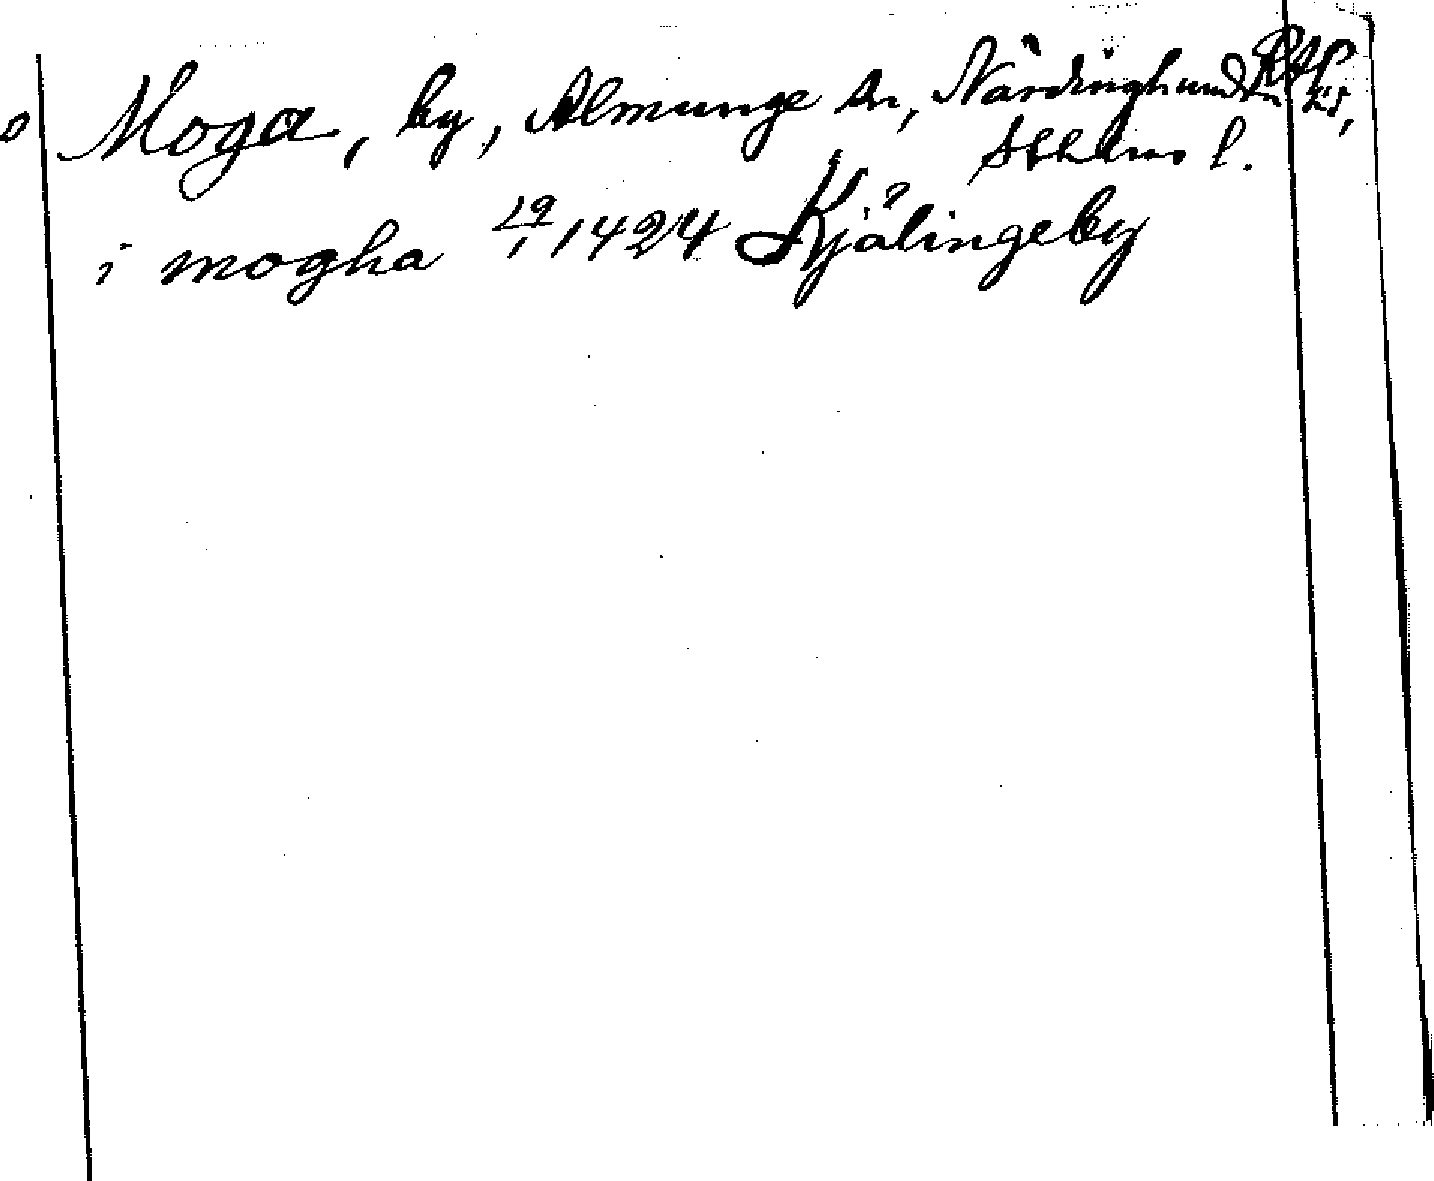 Moga, by, Almunge sn, Närdinghundra
Sthlms l.
i mogha 29/1 1424 Kjälingeby